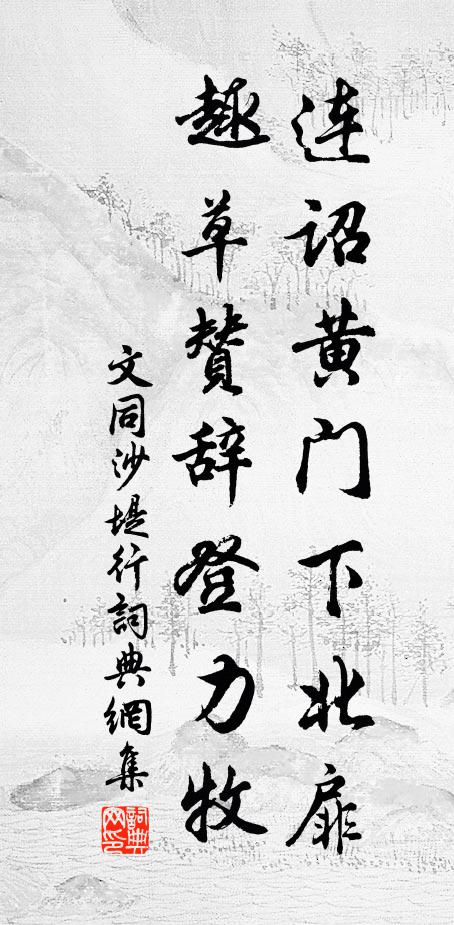 连诏黄门下北扉
趣草赞辞登力牧
文同沙堤行詞典網集
詞典網印